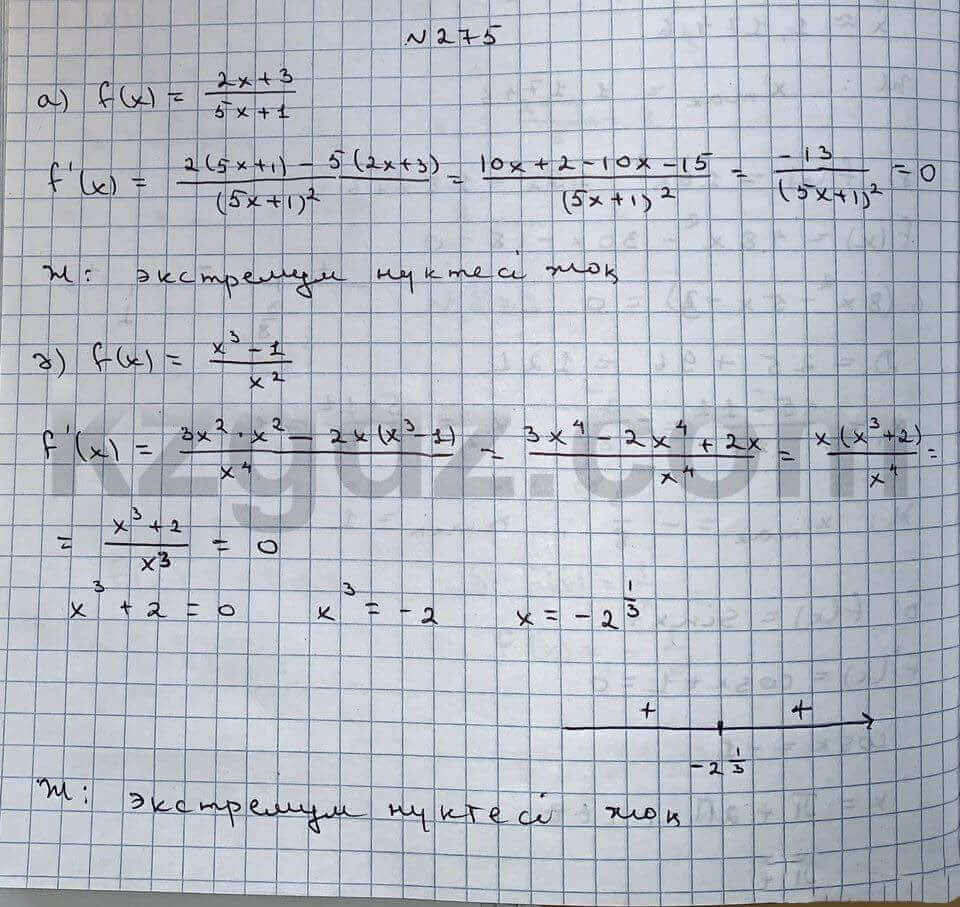 №275
а) f(x) = (2x+3)/(5x+1)
f'(x) = (2(5x+1) - 5(2x+3))/(5x+1)² = (10x+2-10x-15)/(5x+1)² = -13/(5x+1)² = 0
Ж: экстремум нүктесі жоқ
ә) f(x) = (x³-1)/x²
f'(x) = (3x²·x² - 2x(x³-1))/x⁴ = (3x⁴-2x⁴+2x)/x⁴ = x(x³+2)/x⁴ =
= (x³+2)/x³ = 0
x³+2=0 x³=-2 x=-2^(1/3)
+ +
-2^(1/3)
Ж: экстремум нүктесі жоқ
kzgdz.com